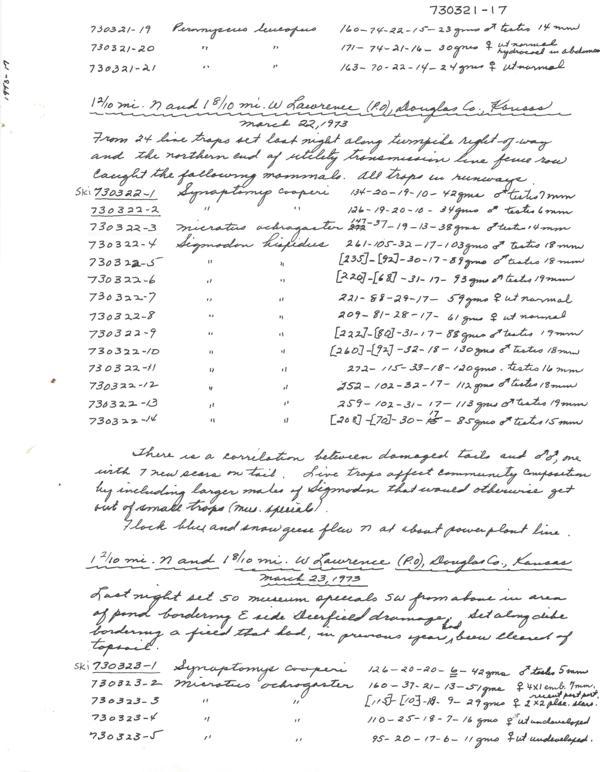 730321-17
730321-19 Peromyscus leucopus 160-74-22-15-23 gms ♂ testis 14 mm
730321-20 " " 171-74-21-16-30 gms ♀ ut normal hydrocoel in abdomen
730321-21 " " 163-70-22-14-24 gms ♀ ut normal
1 2/10 mi. N and 1 8/10 mi. W Lawrence (P.O), Douglas Co., Kansas
March 22, 1973
From 24 live traps set last night along turnpike right-of-way
and the northern end of utility transmission line fence row
caught the following mammals. All traps in runways.
Ski 730322-1 Synaptomys cooperi 134-20-19-10-42 gms ♂ testis 7 mm
730322-2 " " 126-19-20-10-34 gms ♂ testis 6 mm
730322-3 Microtus ochrogaster 147-37-19-13-38 gms ♂ testis 14 mm
730322-4 Sigmodon hispidus 261-105-32-17-103 gms ♂ testis 18 mm
730322-5 " " [235]-[92]-30-17-89 gms ♂ testis 18 mm
730322-6 " " [220]-[68]-31-17-93 gms ♂ testis 19 mm
730322-7 " " 221-88-29-17-59 gms ♀ ut normal
730322-8 " " 209-81-28-17-61 gms ♀ ut normal
730322-9 " " [222]-[80]-31-17-88 gms ♂ testis 19 mm
730322-10 " " [260]-[92]-32-18-130 gms ♂ testis 18 mm
730322-11 " " 272-115-33-18-120 gms. testis 16 mm
730322-12 " " 252-102-32-17-112 gms ♂ testis 18 mm
730322-13 " " 259-102-31-17-113 gms ♂ testis 19 mm
730322-14 " " [208]-[70]-30-17-85 gms ♂ testis 15 mm
There is a correlation between damaged tails and ♂♂, one
with 7 new scars on tail. Live traps affect community composition
by including larger males of Sigmodon that would otherwise get
out of small traps (mus. special).
Flock blue and snow geese flew N at about powerplant line.
1 2/10 mi. N and 1 8/10 mi. W Lawrence (P.O), Douglas Co., Kansas
March 23, 1973
Last night set 50 museum specials SW from above in area
of pond bordering E side Deerfield drainage, Set along dike
bordering a field that had, in previous year, had been cleared of
topsoil.
Ski 730323-1 Synaptomys cooperi 126-20-20-6-42 gms ♂ testis 5 mm
730323-2 Microtus ochrogaster 160-37-21-13-51 gms ♀ 4x1 emb. 7 mm. recent post part.
730323-3 " " [115]-[10]-18-9-29 gms ♀ 2x2 plac. scars.
730323-4 " " 110-25-18-7-16 gms ♀ ut undeveloped
730323-5 " " 95-20-17-6-11 gms ♀ ut undeveloped.